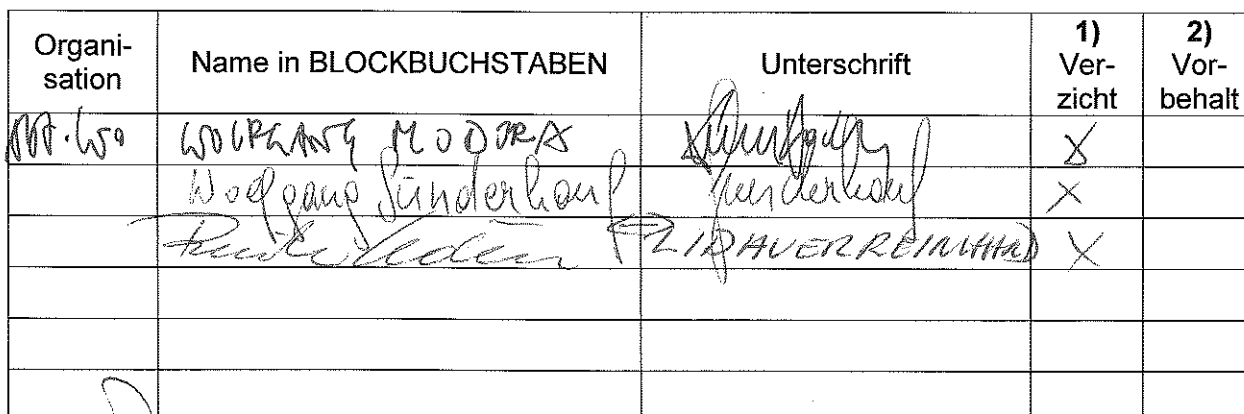 Organi-
sation
Name in BLOCKBUCHSTABEN
Unterschrift
1)
Ver-
zicht
2)
Vor-
behalt
WOLFGANG X
Wolfgang Sünderhauf Sünderhauf X
LIDAUER REINHARD X